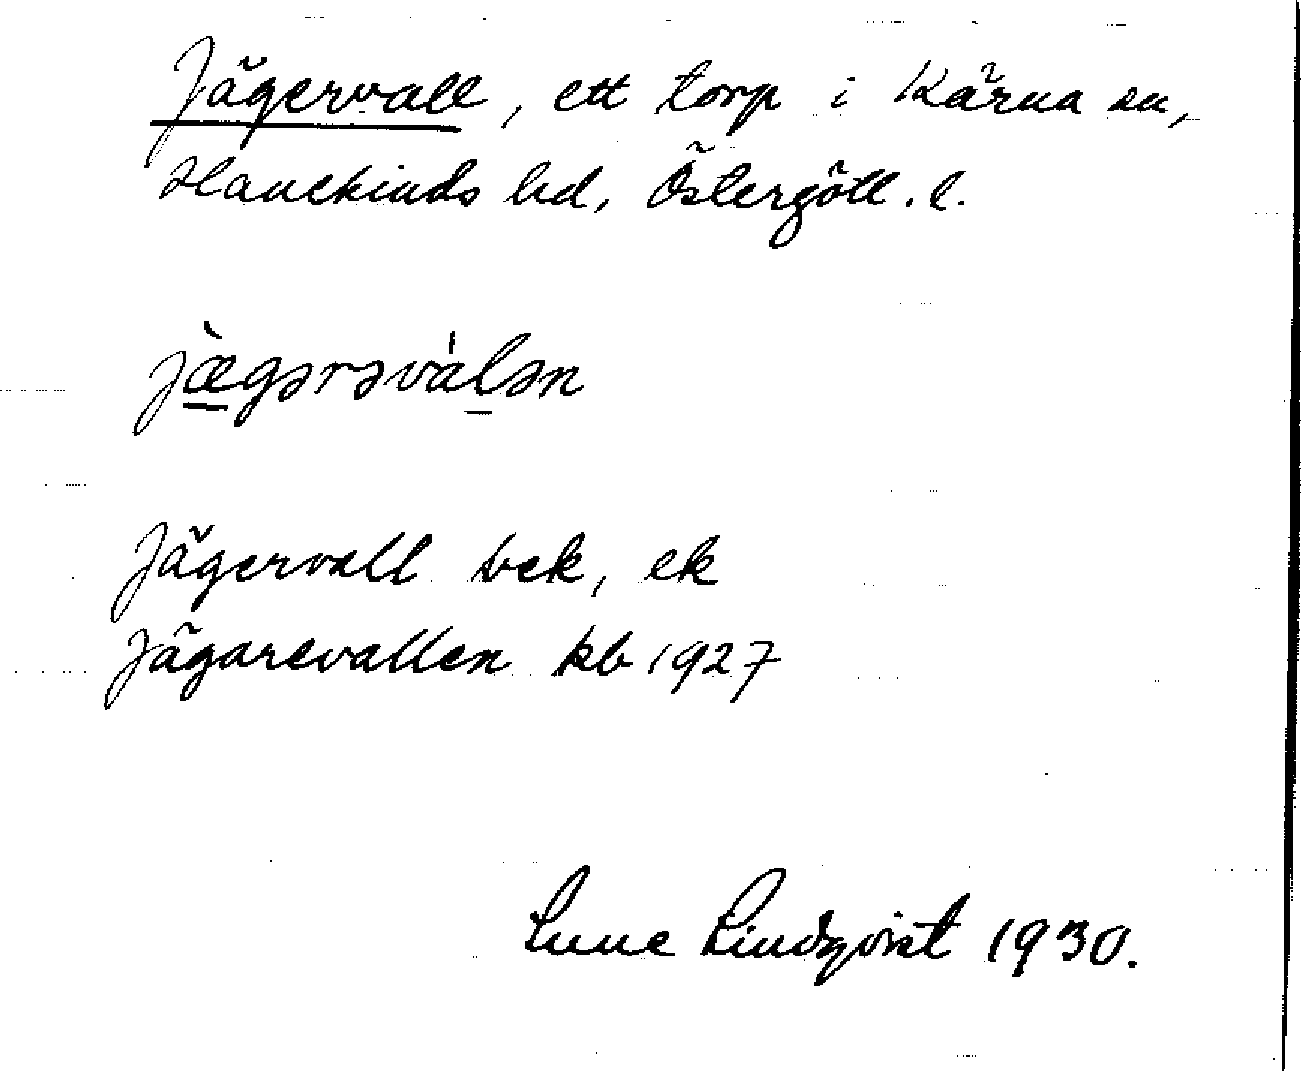 Jägervall, ett torp i Kärna sn,
Hanekinds hd, Östergötl. l.
jæ̀gərəvàlən
Jägervall bek, ek
Jägarevallen kb 1927
Sune Lindqvist 1930.